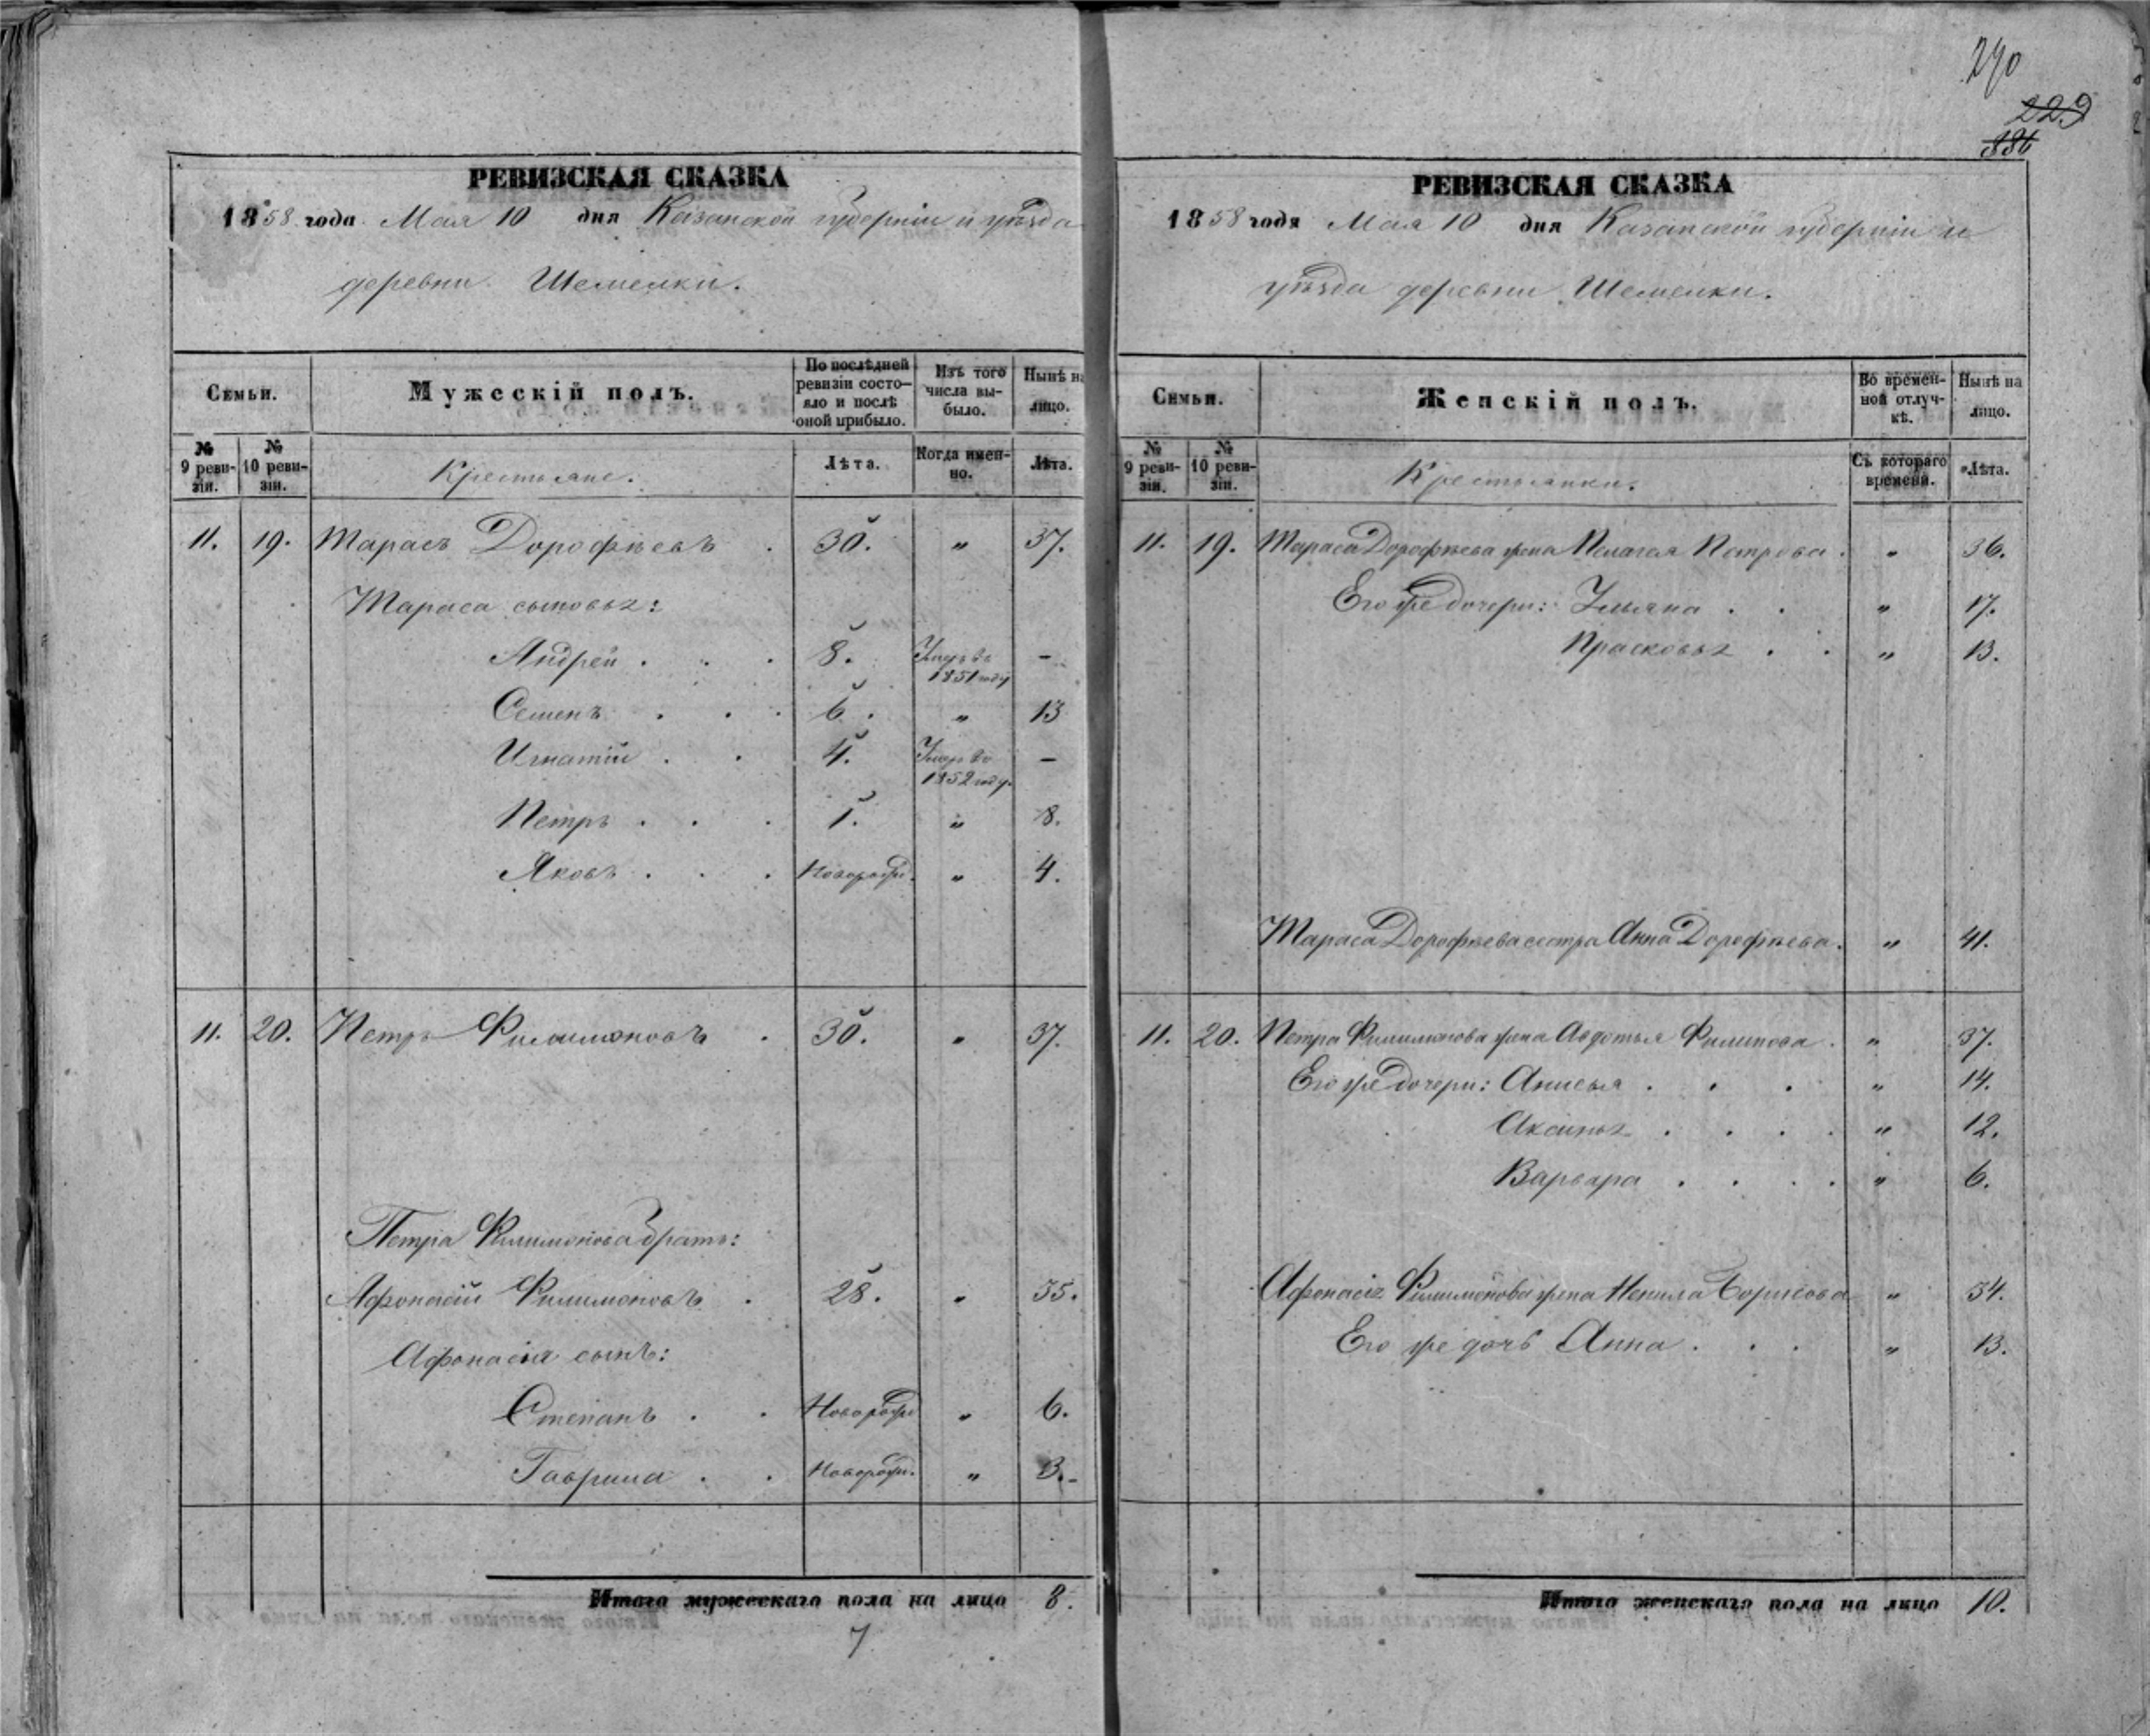 270
229
886
РЕВИЗСКАЯ СКАЗКА
1858 года Мая 10 дня Казанской губерніи и уѣзда
деревни Шемелки.
Семьи.
Мужескій полъ.
По послѣдней ревизіи состояло и послѣ оной прибыло.
Изъ того числа выбыло.
Нынѣ на лицо.
№ 9 ревизіи.
№ 10 ревизіи.
Крестьяне.
Лѣта.
Когда именно.
Лѣта.
11. 19. Тарасъ Дорофѣевъ . 30. " 37.
Тараса сыновья:
Андрей . . . 8. Умеръ въ 1851 году –
Семенъ . . . 6. " 13
Игнатій . . 4. Умеръ въ 1852 году. –
Петръ . . . 1. " 8.
Яковъ . . . Новорожд. " 4.
11. 20. Петръ Филимоновъ . 30. " 37.
Петра Филимонова братъ:
Афонасій Филимоновъ . 28. " 35.
Афонасія сынъ:
Степанъ . . Новорожд " 6.
Гаврила . . Новорожд. " 3.-
Итого мужескаго пола на лицо 8.
7
РЕВИЗСКАЯ СКАЗКА
1858 года Мая 10 дня Казанской губерніи и
уѣзда деревни Шемелки.
Семьи.
Женскій полъ.
Во временной отлучкѣ.
Нынѣ на лицо.
№ 9 ревизіи.
№ 10 ревизіи.
Крестьянки.
Съ котораго времени.
Лѣта.
11. 19. Тараса Дорофѣева жена Пелагея Петрова . " 36.
Его же дочери: Ульяна . . " 17.
Прасковья . . " 13.
Тараса Дорофѣева сестра Анна Дорофѣева. " 41.
11. 20. Петра Филимонова жена Авдотья Филипова . " 37.
Его же дочери: Анисья . . . " 14.
Аксинья . . . . " 12.
Варвара . . . . " 6.
Афонасія Филимонова жена Ненила Борисова " 34.
Его же дочь Анна . . . " 13.
Итого женскаго пола на лицо 10.